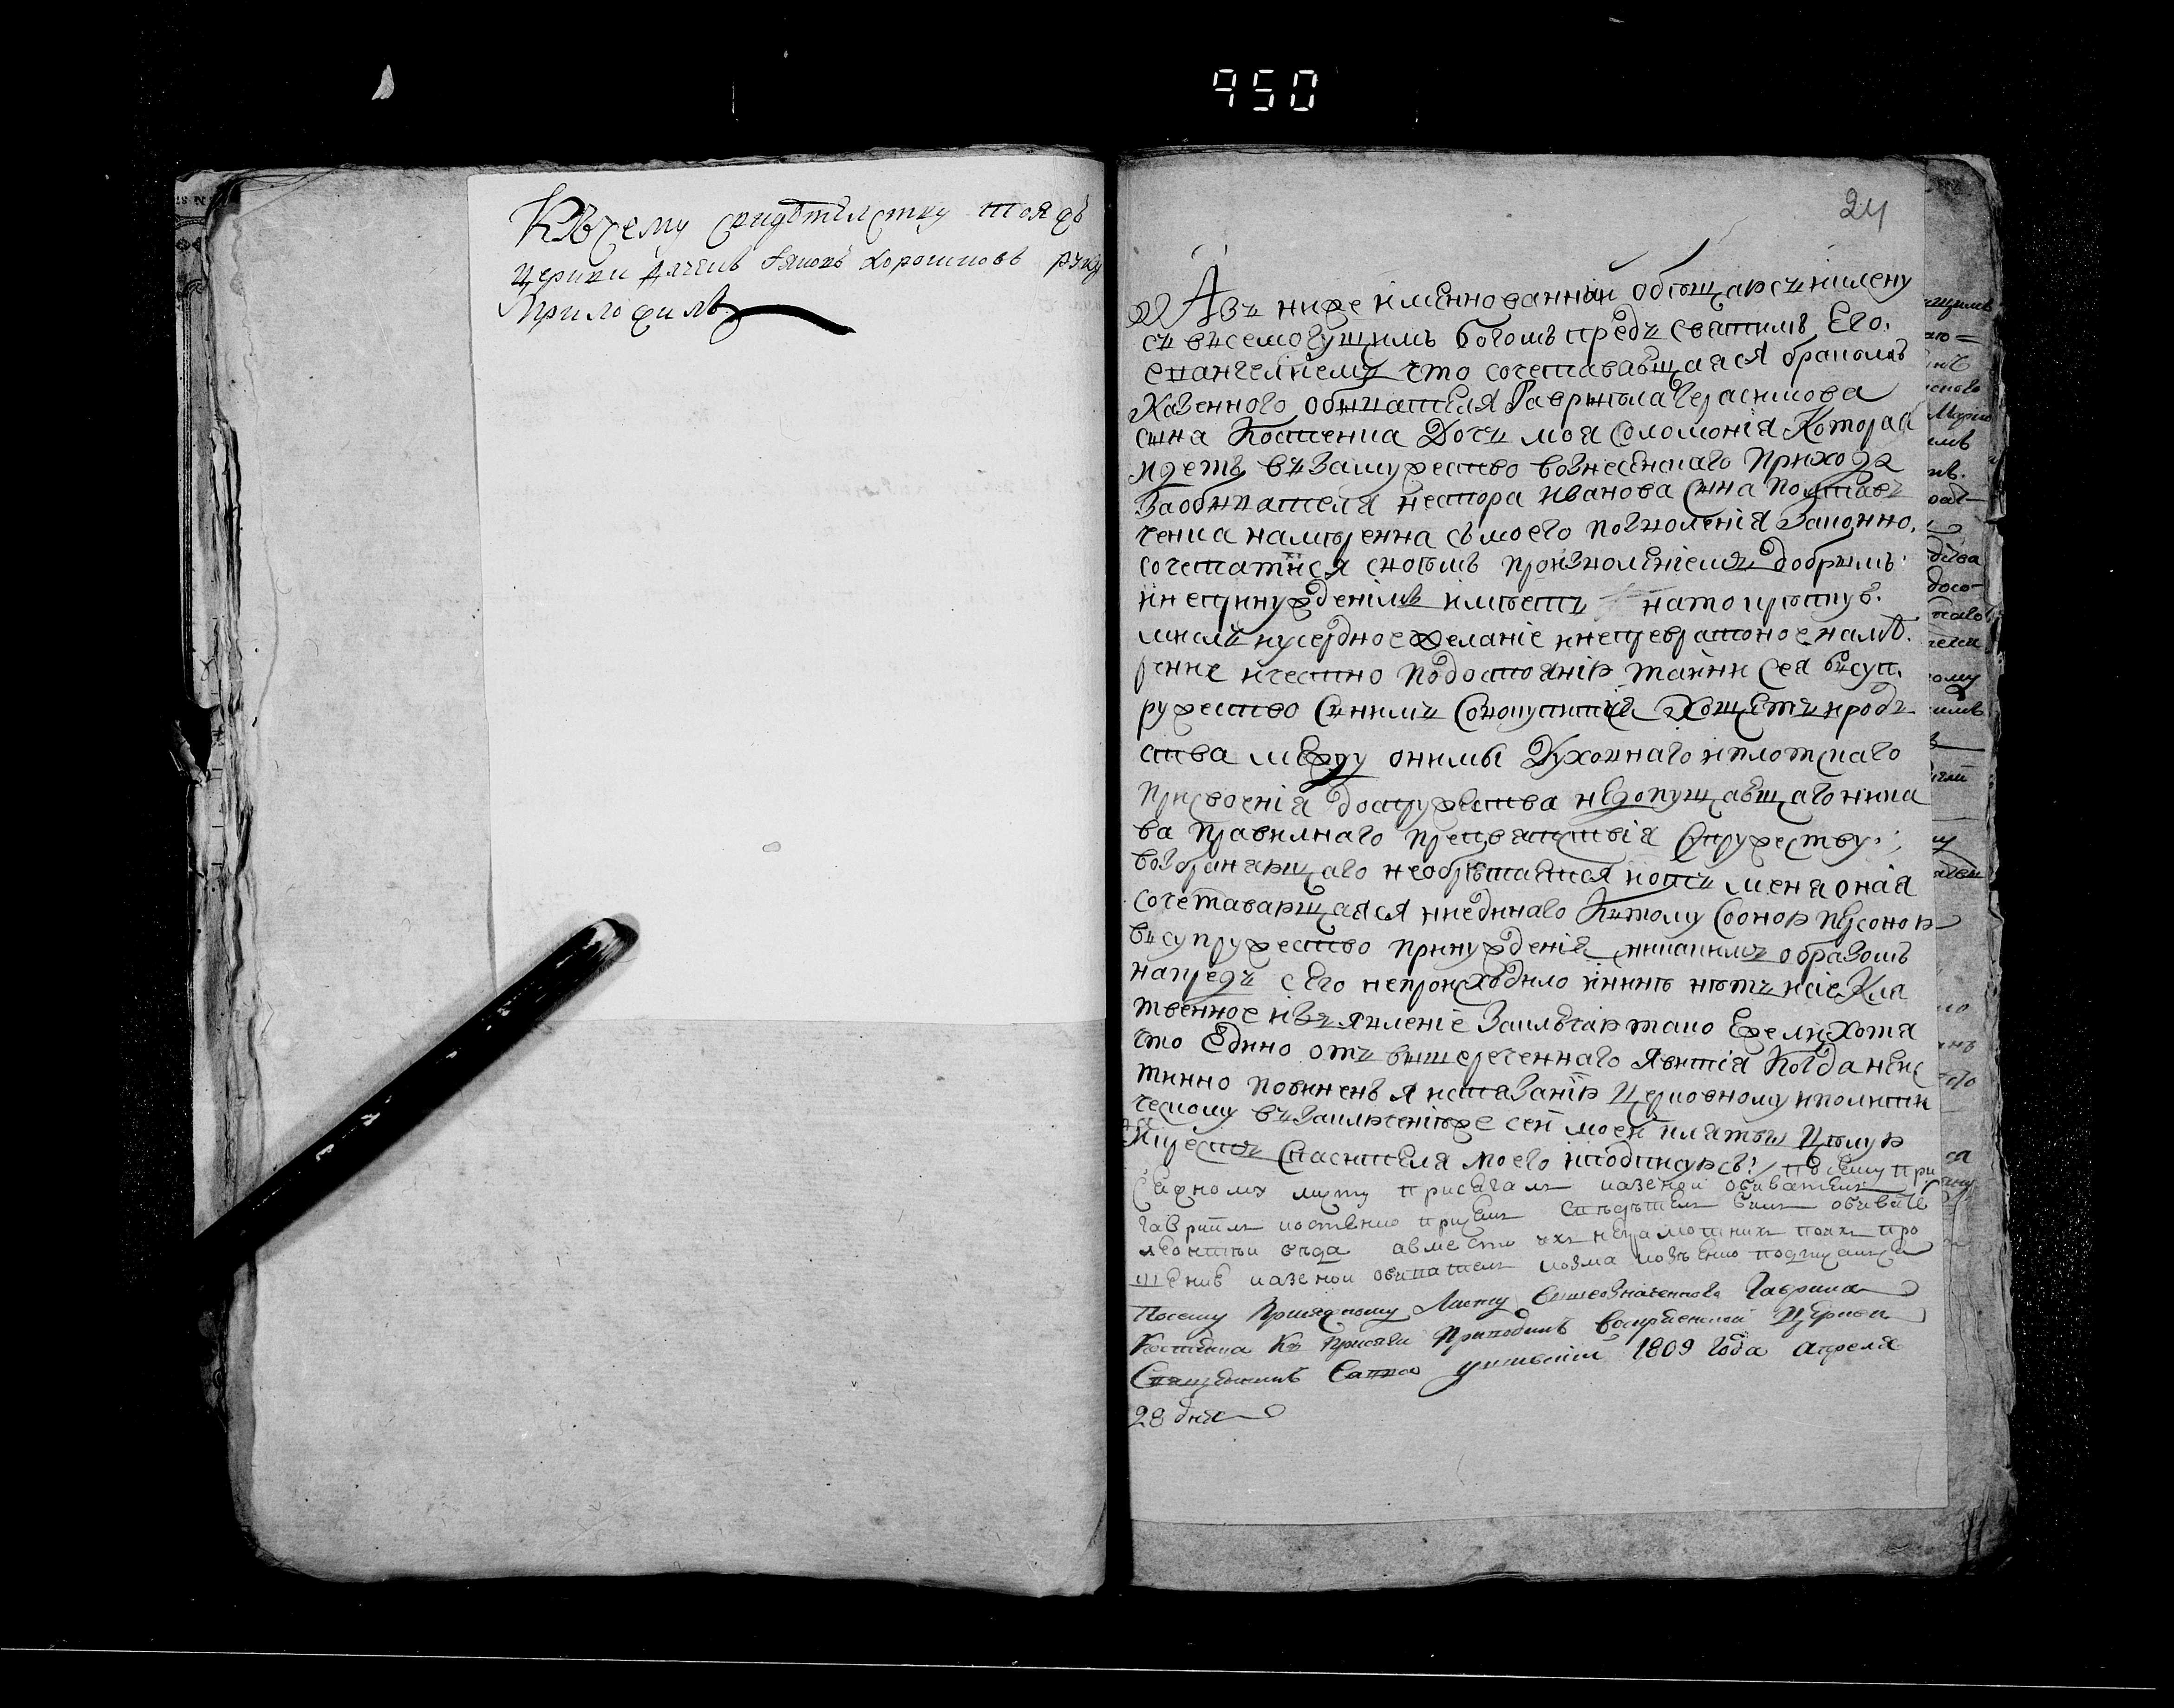 950
Къ сему свидѣтелству тояжъ
церкви дячекъ Яковъ Хорошковъ руку
приложилъ
24
Азъ ниже имѣнно ванный обѣщаюсъ и кленусъ
съ всемогущимъ Богомъ предъ святимъ Его
евангелиемъ что сочетавающаяся бракомъ
казенного обывателя Гавриила Герасимова
сына Костенка дочъ моя Соломонія которая
идетъ въ замужество вознесенскаго прихода
за обывателя нестора иванова сына
ченка намѣренна съ моего позволенія законно
сочетатися своимъ произволѣніемъ добримъ
и не принужденімъ имѣетъ на то
мисль и усердное желаніе и непревратоное намѣ
рение и честно по достоянію тайни сея въ суп
ружество съ нимъ совокупитися хощетъ и родъ
ства между оними духовнаго и плотскаго
присвоенія до супружества недопущающаго ника
ва правилнаго препятствія супружеству
возбраняющаго не обрѣтается и отъ меня оная
сочетавающаяся ниединаго къ тому со оною персоною
въ супружество принужденія никакимъ образомъ
напредъ сего непроисходило и ninѣ нѣтъ и сіе кля
твенное изъявленіе заключаю тако Ежели хотя
что едино отъ вишереченнаго явится когда неис
тинно повиненъ я истязанію церковному и полити
ческому въ заключеніе же сей моей клятвы цѣлую
крестъ Спасителя моего и подписуюсъ: По сему при
сяжному листу присягалъ казеной обиватель
гаврилъ костенко при семъ свѣдетель билъ обивате
леонтии вѣда а вместо ихъ неграмотнихъ по ихъ про
шению казеной обиватель козма подписался
По сему присяжному листу вышеозначеннова Гаврила
Костенка къ присяги приводилъ воскресенской церкви
священникъ Савва 1809 года апреля
28 дня